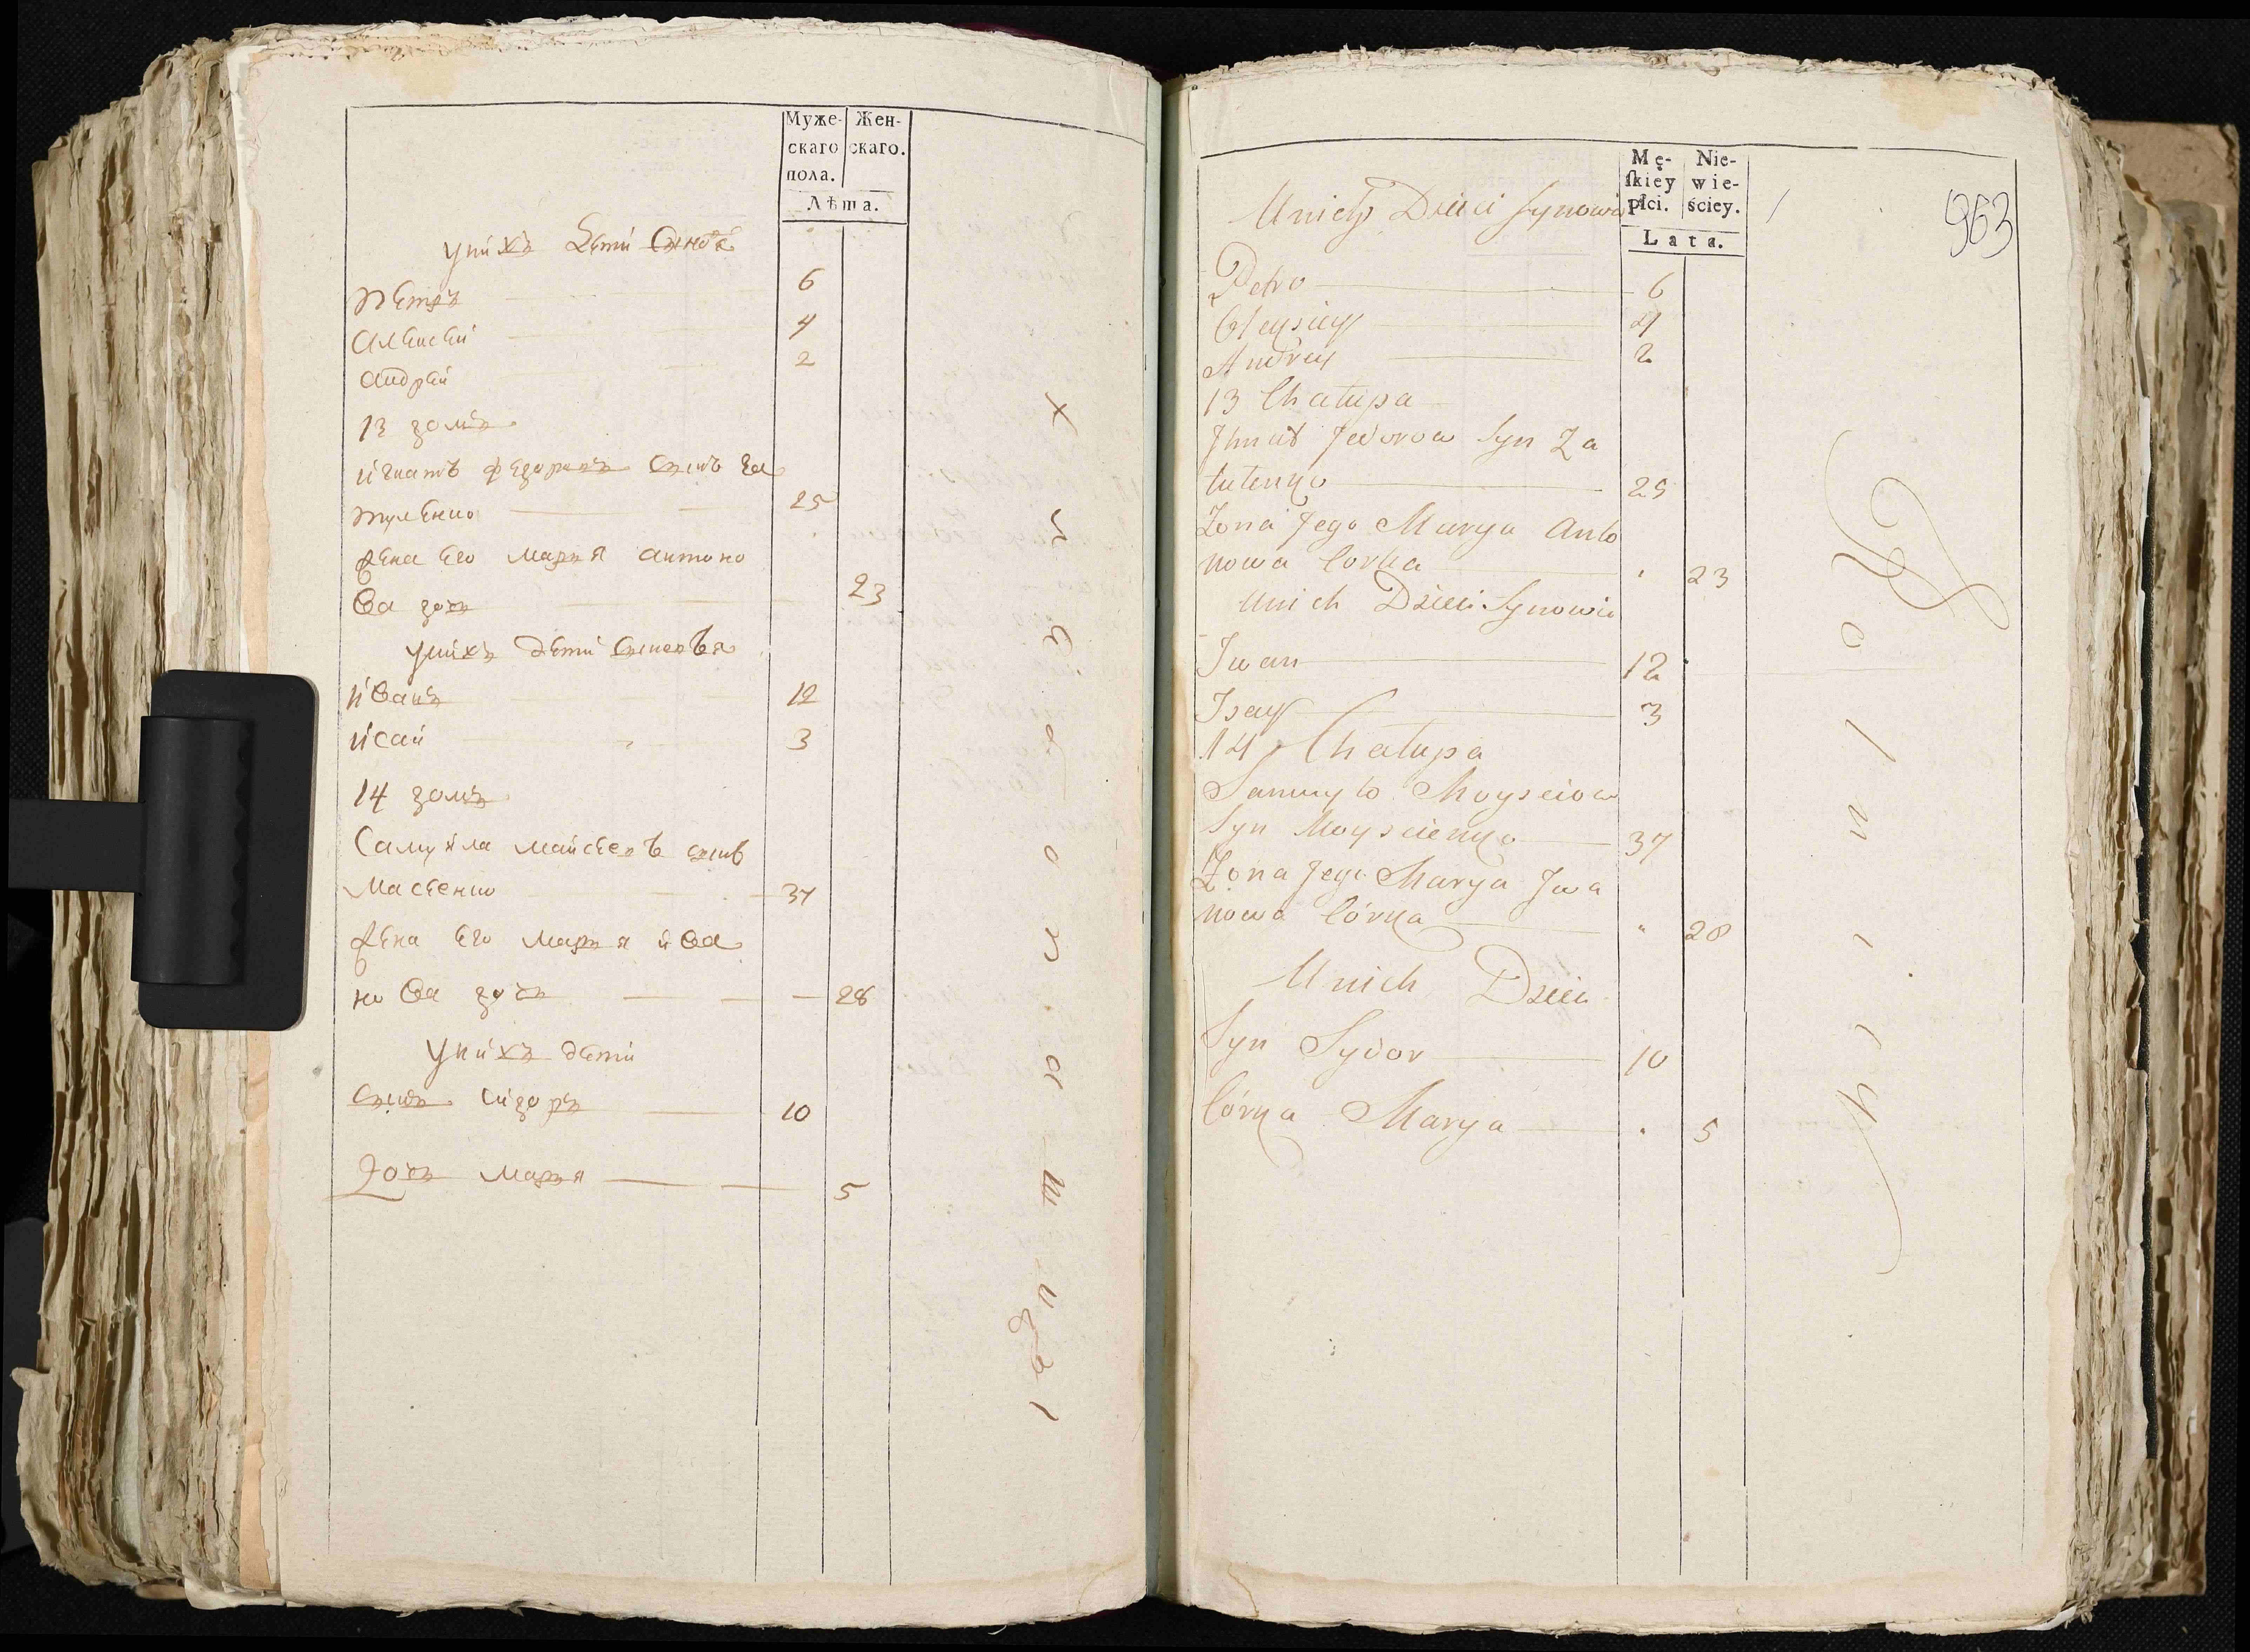 Муже-
скаго
пола.
Жен-
скаго.
Лѣта.
унихъ дети Синове
петръ 6
алексеи 4
андреи 2
13 домъ
игнатъ федоровъ синъ за
туленко 25
жена его маря антоно
ва дочъ 23
унихъ дети синовя
иванъ 12
исаи 3
14 домъ
Самуила маисеевъ синъ
масеенко 37
жена его маря ива
нова дочъ 28
унихъ дети
синъ сидоръ 10
дочъ маря 5
Mę-
skiey
płci.
Nie-
wie-
ściey.
Lata.
963
Unich Dzieci Synowie
Petro 6
Olexiey 4
Andrey 2
13 Chałupa
Jhnat Fedorow Syn Za
tulenko 25
Żona Jego Marya Anto
nowa Corka 23
Unich Dzieci Synowie
Iwan 12
Isay 3
14 Chałupa
Samuyło Moyseiow
Syn Moysieienko 37
Żona Jego Marya Iwa
nowa Córka 28
Unich Dzieci
Syn Sydor 10
Córka Marya 5